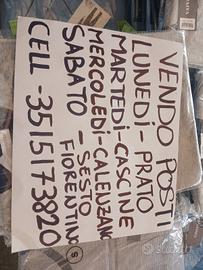 VENDO POSTI
LUNEDÌ - PRATO
MARTEDÌ - CASCINE
MERCOLEDÌ - CALENZANO
SABATO - SESTO
FIORENTINO
CELL - 3515173820
S
subito